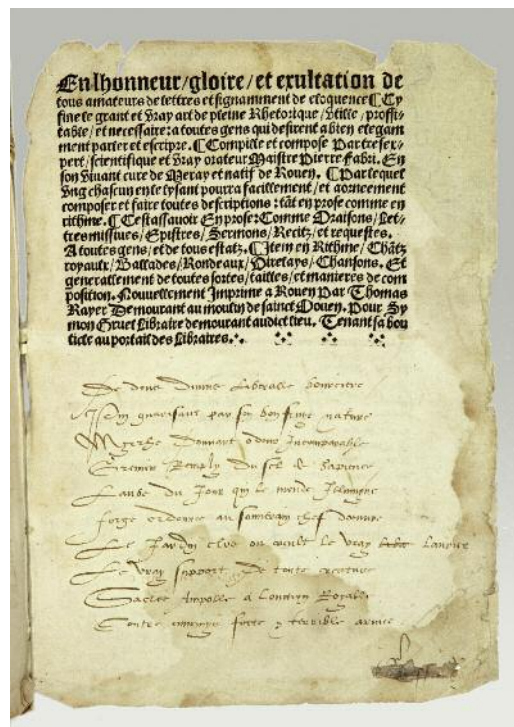 En lhonneur/gloire/et exultation de
tous amateurs de lettres et signamment de eloquence ⸿ Cy
fine le grant et vray art de pleine Rhetorique/vtille/proffi-
table/et necessaire: a toutes gens qui desirent a bien elegam
ment parler et escripre. ⸿ Compile et compose Par tresex-
pert/scientifique et vray orateur Maistre Pierre Fabri. En
son viuant cure de Meray et natif de Rouen. ⸿ Par lequel
vng chascun en le lysant pourra facillement/et aorneement
composer et faire toutes descriptions: tãt en prose comme en
rithme. ⸿ Cestassauoir En prose: Comme Oraisons/Let-
tres missiues/Epistres/Sermons/Recitz/et requestes.
A toutes gens/et de tous estatz. ⸿ Item en Rithme/Chãtz
royaulx/Ballades/Rondeaux/Virelays/Chansons. Et
generallement de toutes sortes/tailles/et manieres de com
position. Nouuellement Imprime a Rouen Par Thomas
Rayer Demourant au moulin de sainct Ouen. Pour Sy
mon Gruel Libraire demourant audict lieu. Tenant sa bou
ticle au portail des Libraires.
De dous diuine
par son
odeur Incomparable
Remply du sel de Sapience
Laube du Jour qui le monde Illumyne
forge ordonne au chef
Le Jardin clos ou le vray
Le vray support de toute creature
Sacree Ampolle a Royalle
Contre forte & terrible armee